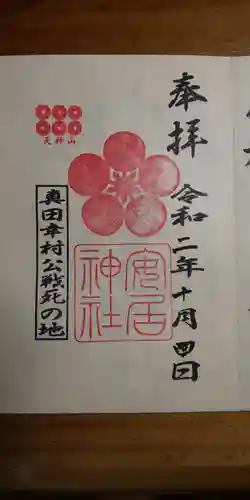 奉拝 令和二年十月四日
天神山
安居
神社
真田幸村公戦死の地